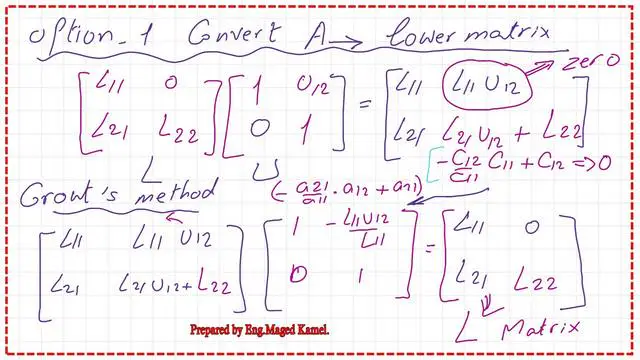 option-1 Convert A → lower matrix
[L11 0; L21 L22] [1 U12; 0 1] = [L11 L11 U12; L21 L21 U12 + L22] → zero
L U [-C12/C11 C11 + C12 => 0
Grout's method (-a21/a11 . a12 + an1)
[L11 L11 U12; L21 L21 U12 + L22] [1 -L11U12/L11; 0 1] = [L11 0; L21 L22]
L Matrix
Prepared by Eng.Maged Kamel.